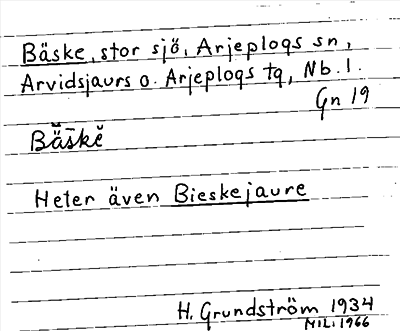 Bäske, stor sjö, Arjeplogs sn,
Arvidsjaurs o. Arjeplogs tq, Nb. l.
Gn 19
Bä̆s̄kĕ
Heter även Bieskejaure
H. Grundström 1934
MILI 1966